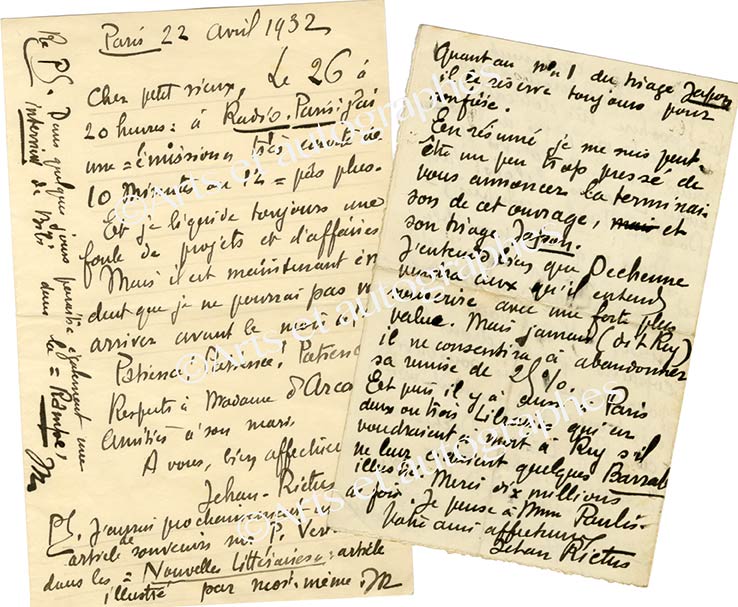 Paris 22 avril 1932
Cher petit vieux, Le 26 à
20 heures = à Radio-Paris j'ai
une = émission, très courte de
10 minutes ou 12 = pas plus.
Et je liquide toujours une
foule de projets et d'affaires
Mais il est maintenant évi
dent que je ne pourrai pas
arriver avant le mois
Patience! Patience! Patience
Respects à Madame d'Arco
Amitiés à son mari.
A vous, bien affectueu
Jehan-Rictus
PS. J'aurai prochainement un
article de souvenirs sur P. Ver
dans les = Nouvelles Littéraires = article
illustré par moi-même. JR
Re PS. Dans quelques jours paraîtra également une
interview de Bibi dans la = Rampe, JR
Quant au n° 1 du tirage Japon
il le réserve toujours pour
En résumé je me suis peut-
être un peu trop pressé de
vous annoncer la terminai
son de cet ouvrage, mais et
son tirage Japon.
J'entends bien que Dechenne
versera ceux qu'il entend
souscrire avec une forte plus
value. Mais jamais (dit Rey)
il ne consentira à abandonner
sa remise de 25%.
Et puis il y a aussi à Paris
deux ou trois Libraires qui en
voudraient à mort à Rey s'il
ne leur quelques Barrab
illustrés. Merci dix millions
de fois. Je pense à Mme Paulis-
Votre ami affectueux
Jehan Rictus
©Arts et autographes
©Arts et autographes
©Arts et autographes
©Arts et autographes